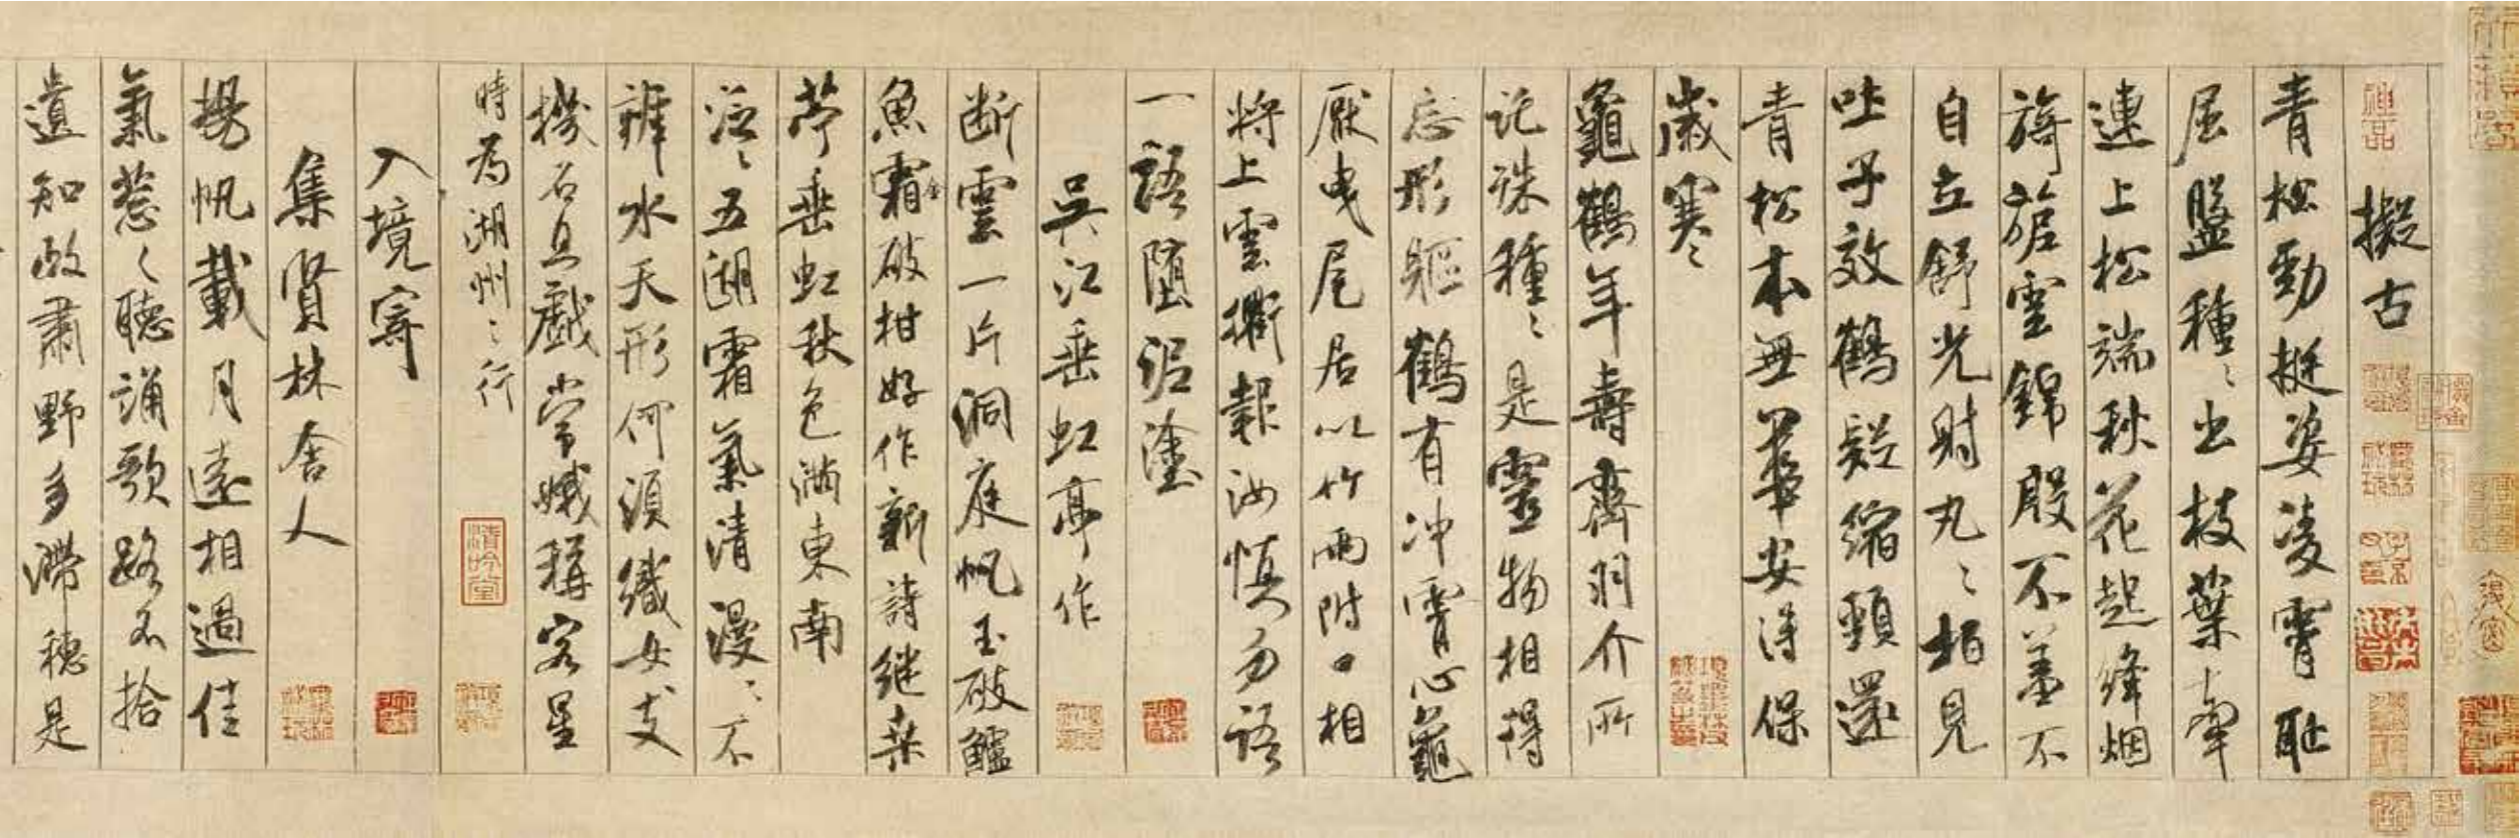 擬古
青松勁挺姿淩霄恥
屈盤種〻出枝葉牽
連上松端秋花起絳烟
旖旎雲錦殷不羞不
自立舒光射丸〻柏見
吐子效鶴疑縮頸還
青松本無華安得保
歲寒〻
龜鶴年壽齊羽介所
託殊種〻是靈物相得
忘形軀鶴有沖霄心龜
厭曳尾居以竹兩附口相
將上雲衢報汝慎勿語
一語墮泥塗
吳江垂虹亭作
断雲一片洞庭帆玉破鱸
魚霜金破柑好作新詩継桒
苧垂虹秋色滿東南
泛〻五湖霜氣清漫〻不
辨水天形何須織女支
機石且戲常娥稱客星
時為湖州之行
入境寄
集賢林舍人
揚帆載月遠相過佳
氣葱〻聽誦歌路不拾
遺知政肅野多滯穗是
清吟堂